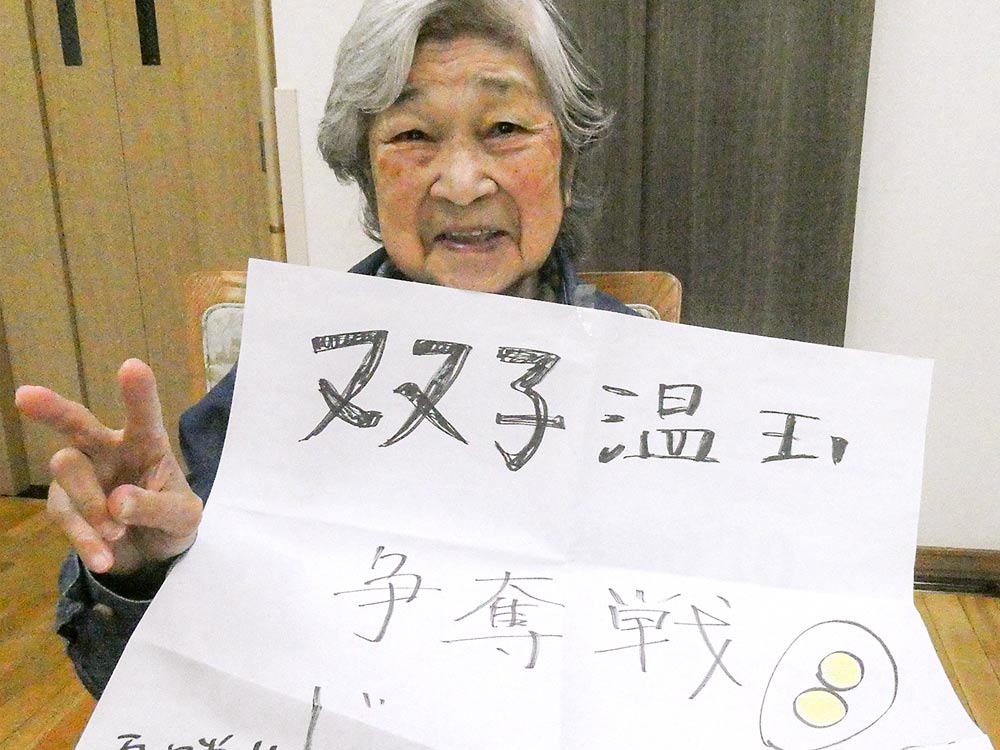 双子温玉
争奪戦